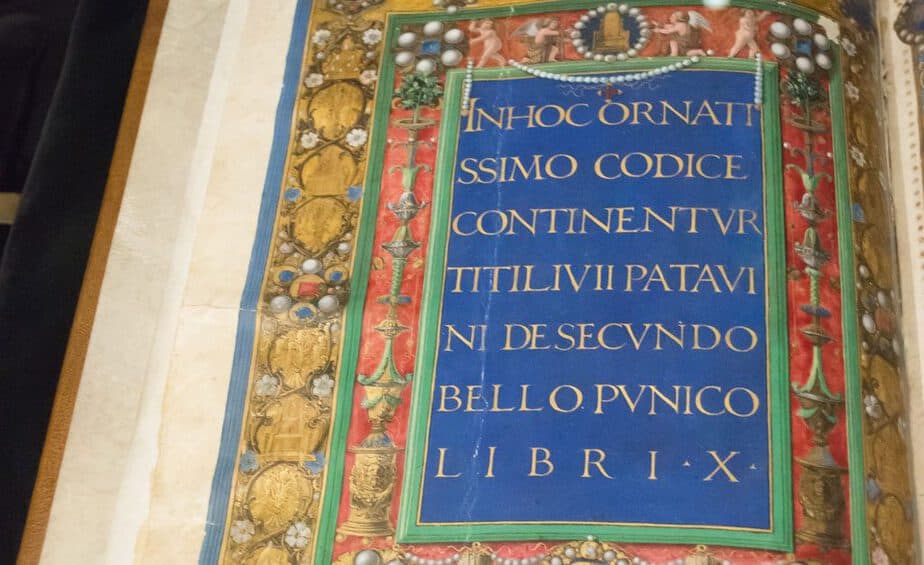 IN HOC ORNATI
SSIMO CODICE
CONTINENTVR
TITI LIVII PATAVI
NI DE SECVNDO
BELLO PVNICO
LIBRI · X ·